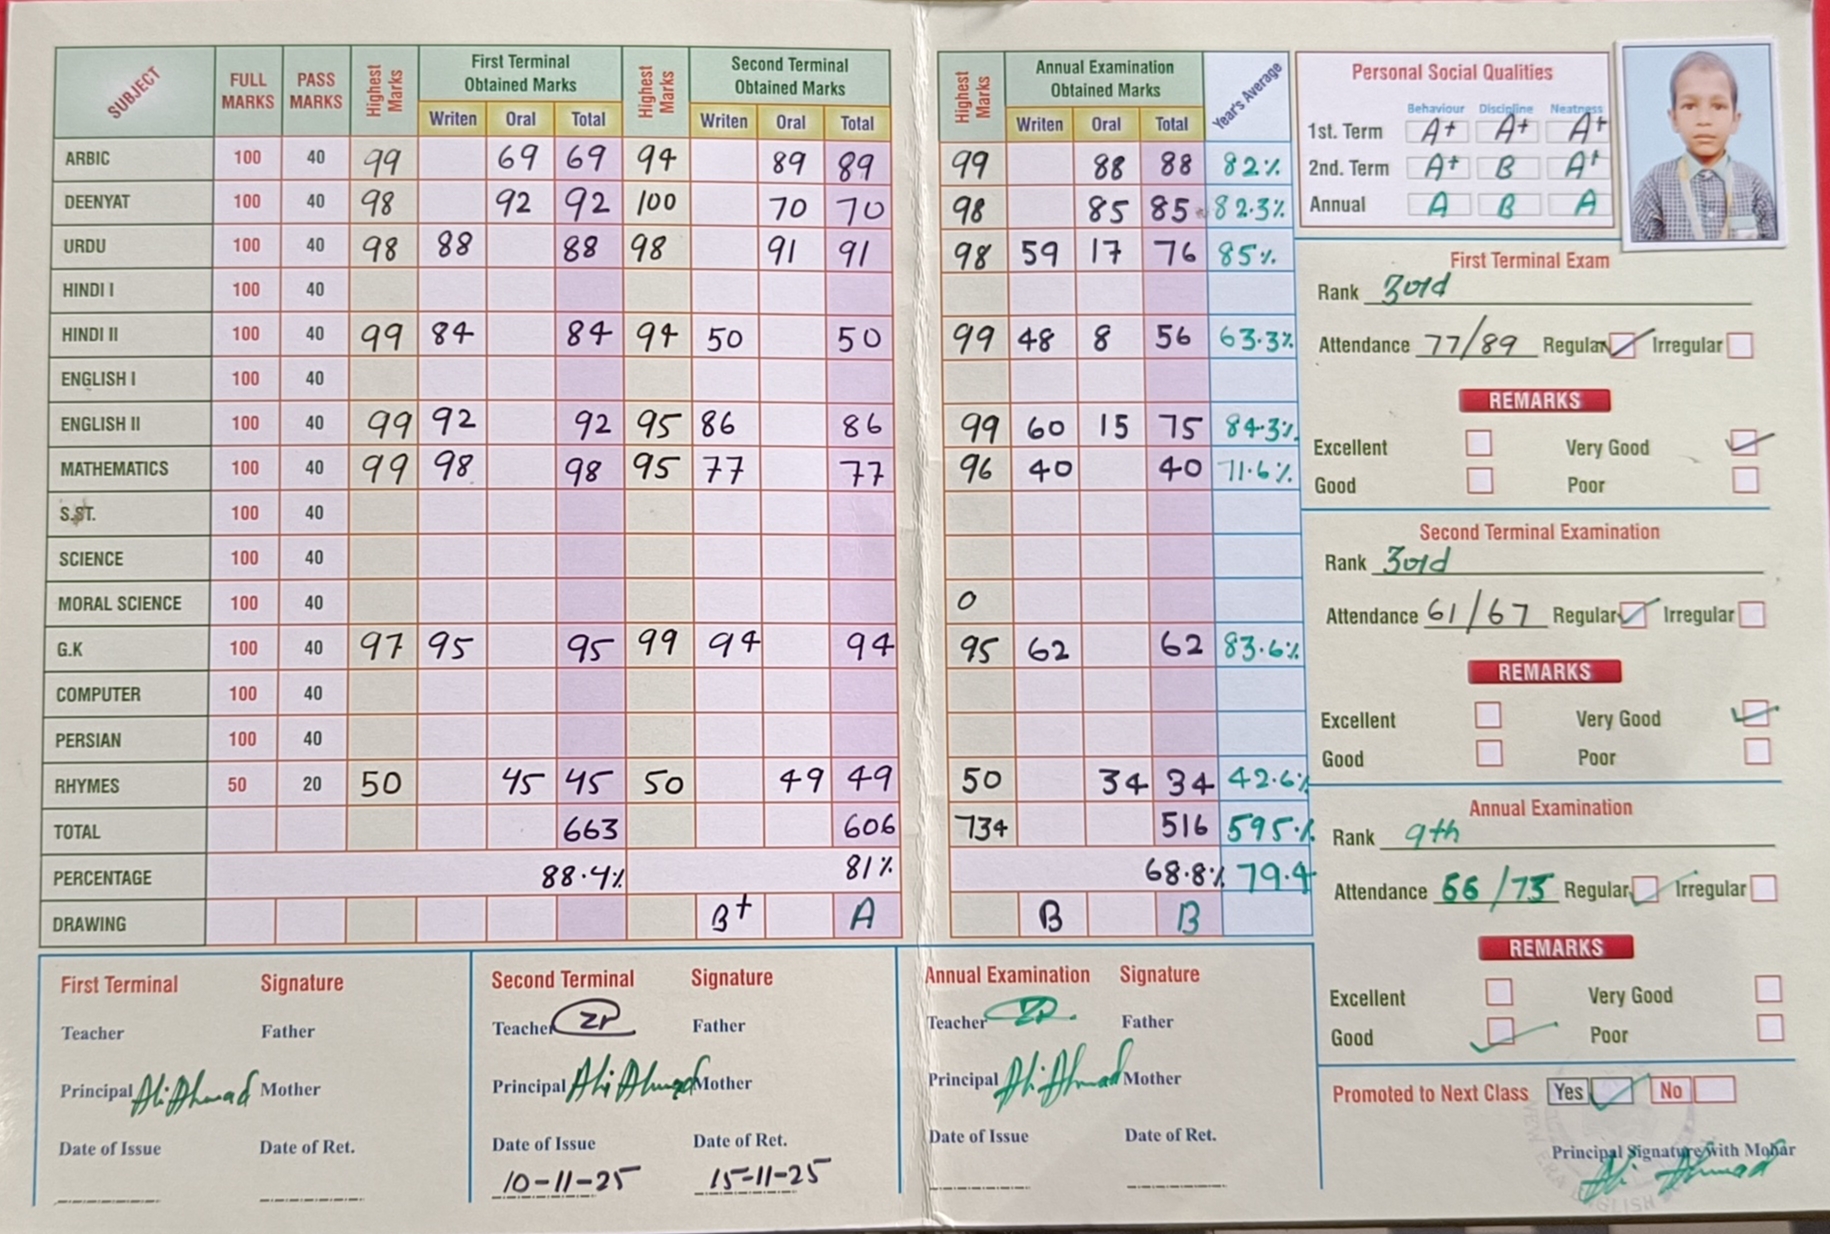 SUBJECT FULL MARKS PASS MARKS Highest Marks First Terminal Obtained Marks Highest Marks Second Terminal Obtained Marks Highest Marks Annual Examination Obtained Marks Year's Average
Writen Oral Total Writen Oral Total Writen Oral Total
ARBIC 100 40 99 69 69 94 89 89 99 88 88 82%
DEENYAT 100 40 98 92 92 100 70 70 98 85 85 82.3%
URDU 100 40 98 88 88 98 91 91 98 59 17 76 85%
HINDI I 100 40
HINDI II 100 40 99 84 84 94 50 50 99 48 8 56 63.3%
ENGLISH I 100 40
ENGLISH II 100 40 99 92 92 95 86 86 99 60 15 75 84.3%
MATHEMATICS 100 40 99 98 98 95 77 77 96 40 40 71.6%
S.ST. 100 40
SCIENCE 100 40
MORAL SCIENCE 100 40 0
G.K 100 40 97 95 95 99 94 94 95 62 62 83.6%
COMPUTER 100 40
PERSIAN 100 40
RHYMES 50 20 50 45 45 50 49 49 50 34 34 42.6%
TOTAL 663 606 734 516 595.%
PERCENTAGE 88.4% 81% 68.8% 79.4
DRAWING B+ A B B
First Terminal Signature
Teacher Father
Principal Ali Ahmad Mother
Date of Issue Date of Ret.
Second Terminal Signature
Teacher ZP Father
Principal Ali Ahmad Mother
Date of Issue Date of Ret.
10-11-25 15-11-25
Annual Examination Signature
Teacher ZP Father
Principal Ali Ahmad Mother
Date of Issue Date of Ret.
Personal Social Qualities
Behaviour Discipline Neatness
1st. Term A+ A+ A+
2nd. Term A+ B A+
Annual A B A
First Terminal Exam
Rank 3rd
Attendance 77/89 Regular Irregular
REMARKS
Excellent Very Good
Good Poor
Second Terminal Examination
Rank 3rd
Attendance 61/67 Regular Irregular
REMARKS
Excellent Very Good
Good Poor
Annual Examination
Rank 9th
Attendance 66/73 Regular Irregular
REMARKS
Excellent Very Good
Good Poor
Promoted to Next Class Yes No
Principal Signature With Mohar
Ali Ahmad